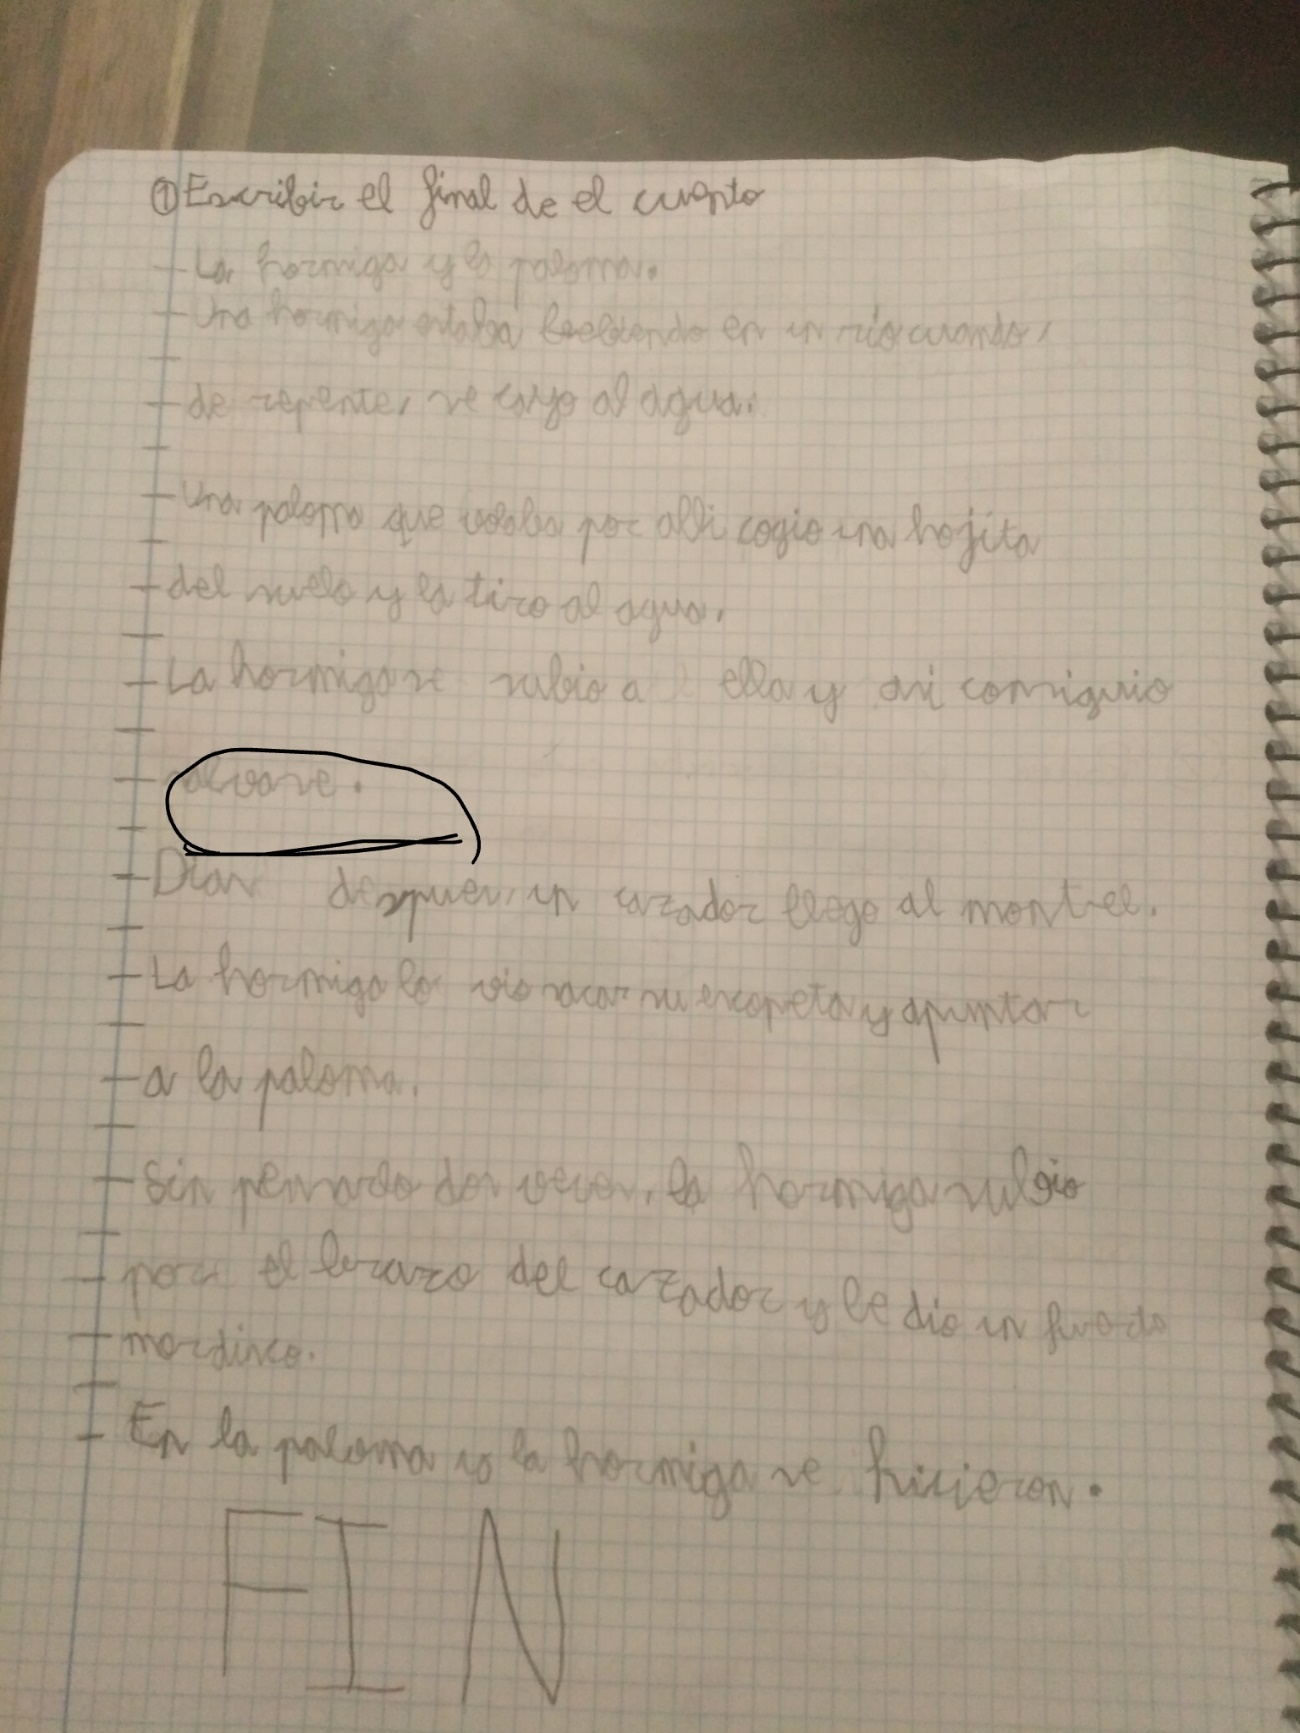 ① Escribir el final de el cuento
La hormiga y la paloma.
Una hormiga estaba beebiendo en un río cuando,
de repente, se cayo al agua.
Una paloma que volaba por alli cogio una hojita
del suelo y la tiro al agua.
La hormiga se subio a ella y asi consiguio
salvarse.
Dias despues, un cazador llego al monte.
La hormiga lo vio sacar su escopeta y apuntar
a la paloma.
Sin pensarlo dos veces, la hormiga subio
por el brazo del cazador y le dio un fuerte
mordisco.
En la paloma y la hormiga se hicieron.
FIN